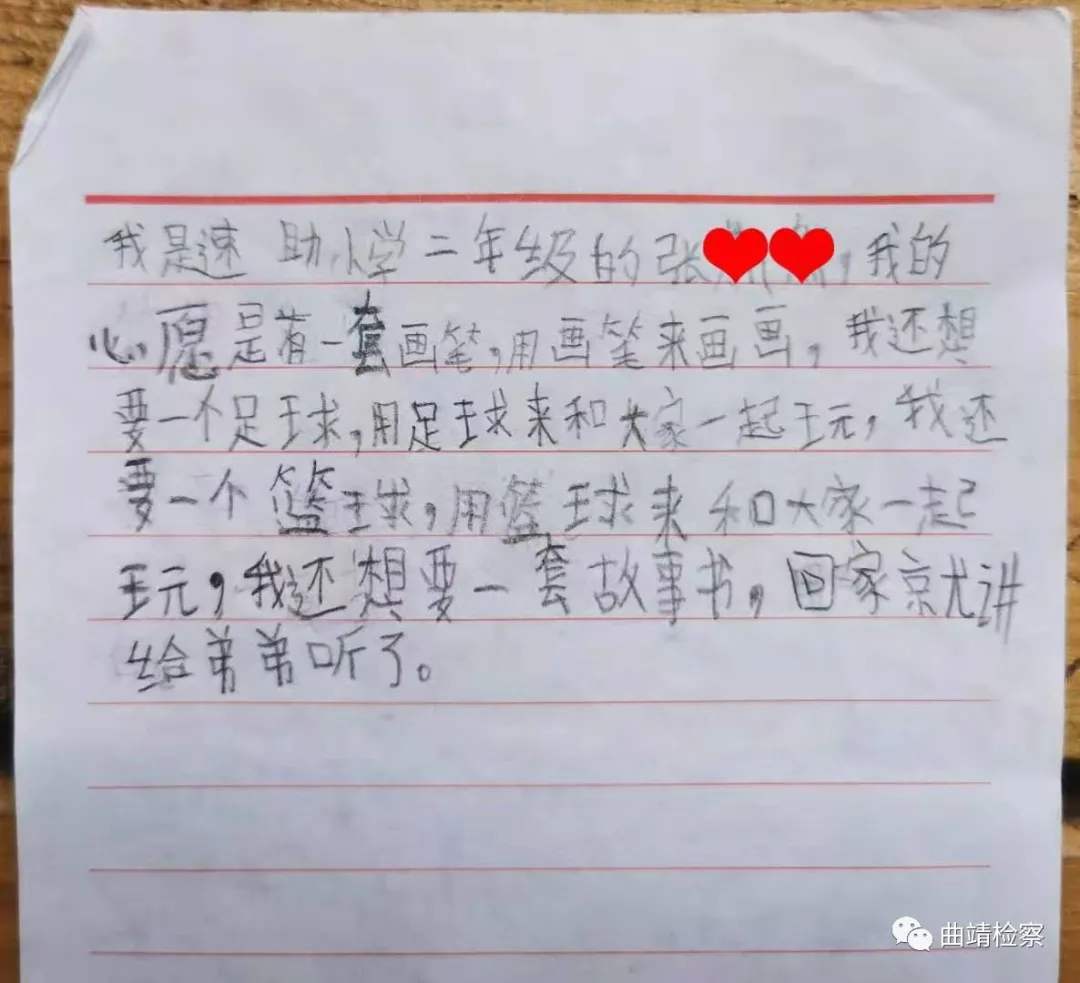 我是速助小学二年级的张❤❤,我的
心愿是有一套画笔,用画笔来画画,我还想
要一个足球,用足球来和大家一起玩,我还
要一个篮球,用篮球来和大家一起
玩,我还想要一套故事书,回家就讲
给弟弟听了。
曲靖检察